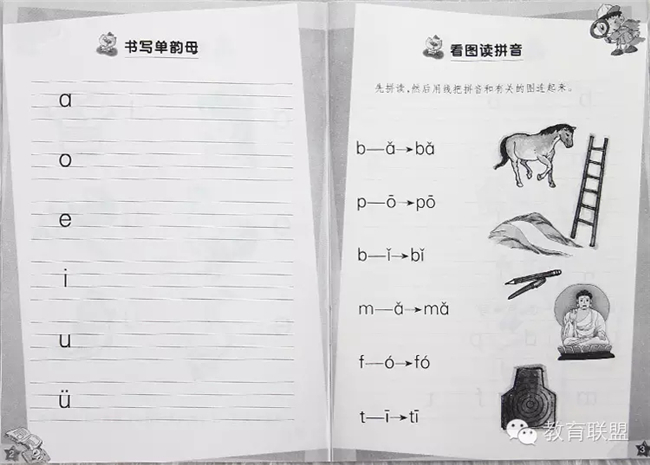 书写单韵母
a
o
e
i
u
ü
2
看图读拼音
先拼读,然后用线把拼音和有关的图连起来。
b—ǎ→bǎ
p—ō→pō
b—ǐ→bǐ
m—ǎ→mǎ
f—ó→fó
t—ī→tī
教育联盟
3